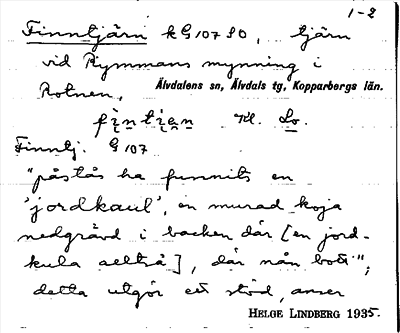 1-2
Finntjärn kG10780, tjärn
vid Rymmans mynning i
Rotnen, Älvdalens sn, Älvdals tg, Kopparbergs län.
fin̥tiạn Kl. Lo.
Finntj. G 107
"påstås ha funnits en
'jordkaul', en murad koja
nedgrävd i backen där [en jord-
kula alltså], där nån bott";
detta utgör ett stöd, anser
HELGE LINDBERG 1935.